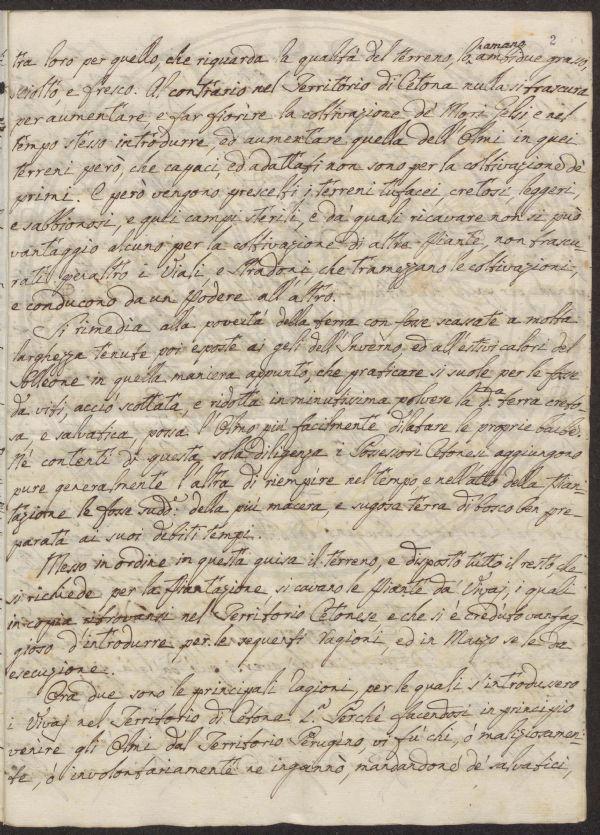 2
tra loro per quello, che riguarda la qualità del terreno, lo amano ambedue grasso,
sciolto e fresco. Al contrario nel Territorio di Cetona nulla si trascura
per aumentare, e far fiorire la coltivazione de' Mori Gelsi e nel
tempo stesso introdurre, ed aumentare quella dell'Olmi in quei
terreni però, che capaci, ed adattati non sono per la coltivazione de'
primi. E però vengono prescelti i terreni tufacei, cretosi, leggeri,
e sabbionosi, e quei campi sterili, e da' quali ricavare non si può
vantaggio alcuno per la coltivazione di altre Piante, non trascu
rati peraltro i Viali, e Stradoni, che tramezzano le coltivazioni,
e conducono da un Podere all'altro.
Si rimedia alla povertà della terra con fosse scassate a molta
larghezza tenute poi esposte ai geli dell'Inverno, ed all'estivi calori del
Solleone in quella maniera appunto, che praticare si suole per le fosse
da viti, acciò scottata, e ridotta in minutissima polvere la d.ta terra creto-
sa, e salvatica, possa l'Olmo più facilmente dilatare le proprie barbe.
Né contenti di questa sola diligenza i Possessori Cetonesi aggiungono
pure generalmente l'altra di riempire nel tempo e nell'atto della Pian-
tazione le fosse sudd.e della più macera, e sugosa terra di bosco ben pre-
parata ai suoi debiti tempi.
Messo in ordine in questa guisa il terreno, e disposto tutto il resto, che
si richiede per la Piantazione si cavano le Piante da' Vivaj, i quali
in copia ritrovansi nel Territorio Cetonese e che si è creduto vantag
gioso d'introdurre per le seguenti ragioni, ed in Marzo se le dà
esecuzione.
Ora due sono le principali ragioni, per le quali s'introdussero
i Vivaj nel Territorio di Cetona. P.o Perché facendosi in principio
venire gli Olmi dal Territorio Perugino vi fù chi, ó maliziosamen-
te, ó involontariamente ne ingannò, mandandone de' salvatici,